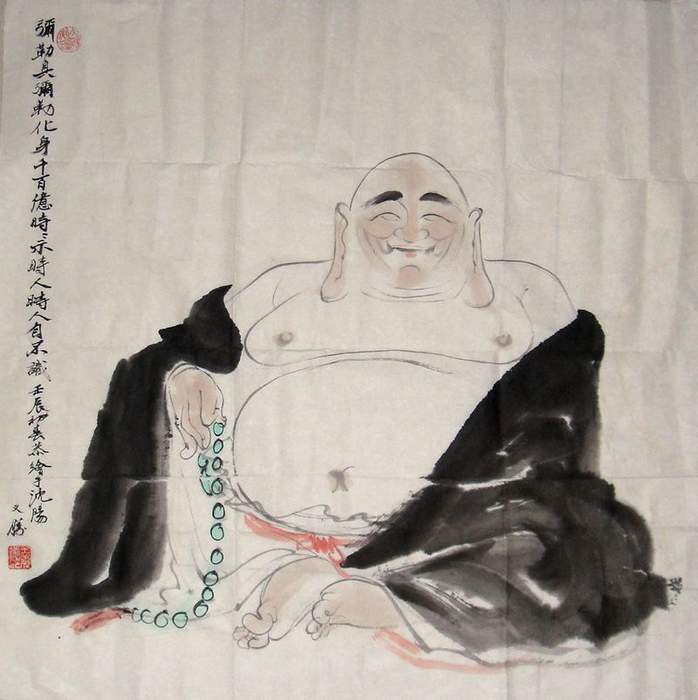 彌勒真彌勒化身千百億時時示時人時人自不識 壬辰初春恭繪于沈陽
文勝